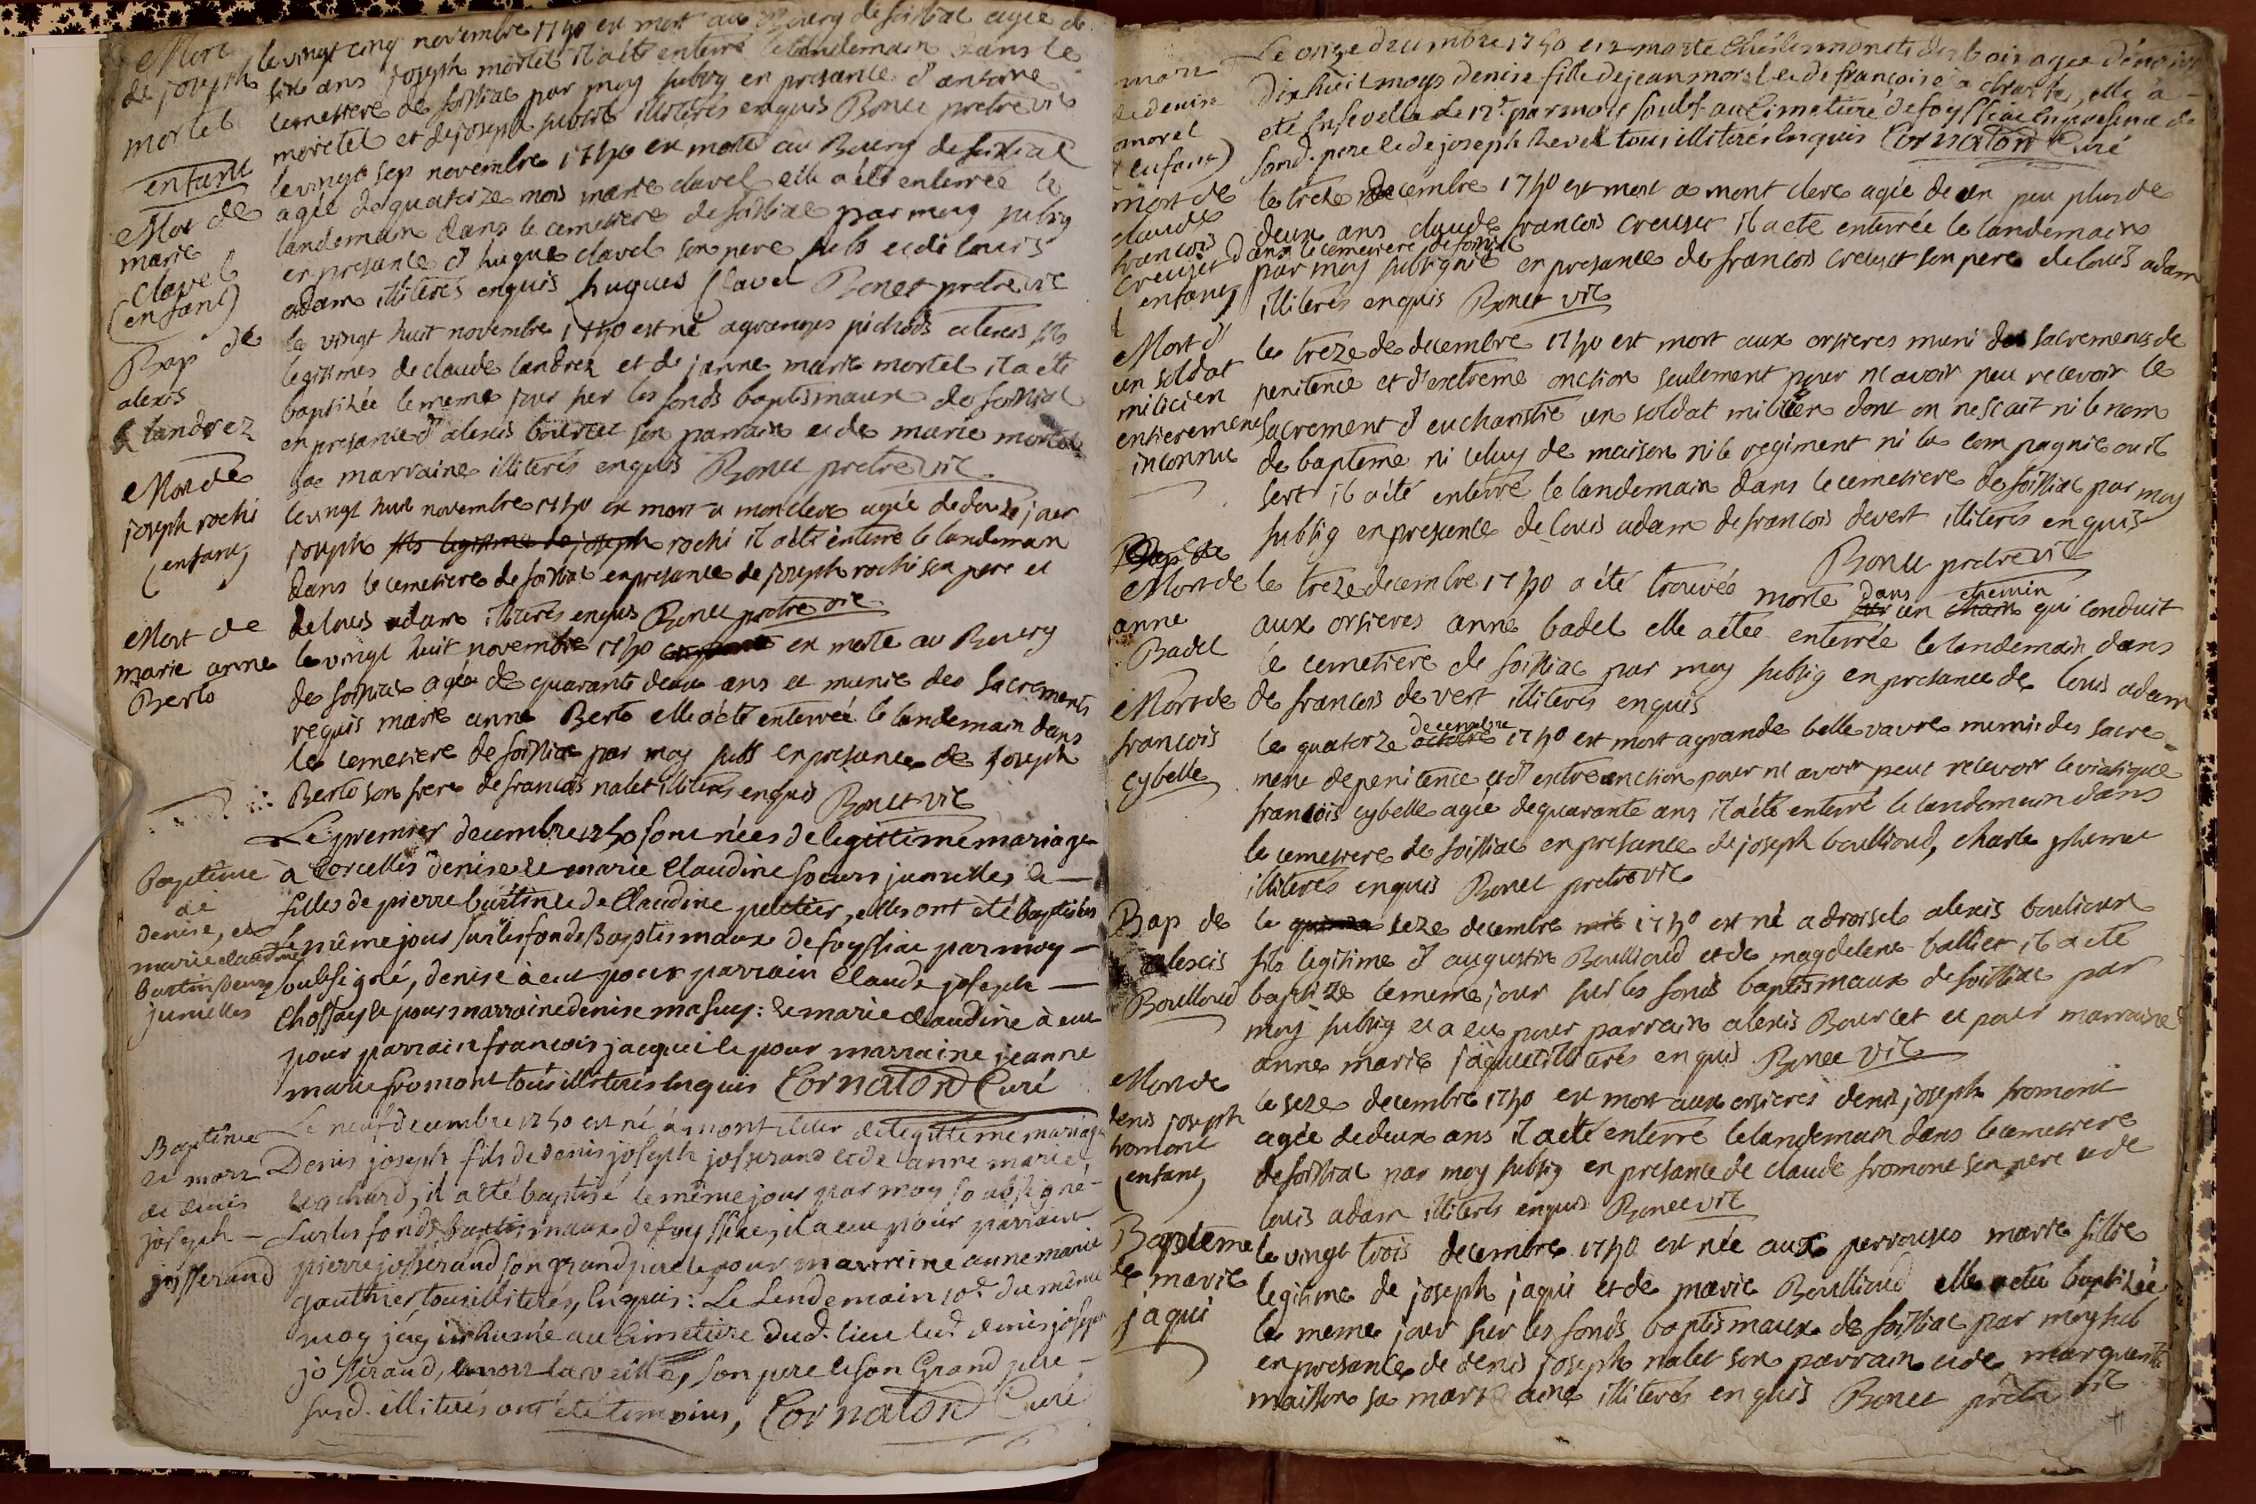 Mort
de joseph
mortel
enfant
le vingt cinq novembre 1740 est mort au Bourg de soissiat agée de
six ans joseph mortel il a été enterré le landemain dans le
cemetiere de soissiat par moy subsig en presance d'antoine
moretel et de joseph illiterés enquis Bonet pretre vic
Mort de
marie
clavel
(enfant)
le vingt sep novembre 1740 est morte au Bourg de soissiat
agée de quatorze mois marie clavel elle a été enterrée le
landemain dans le cemetiere de soissiat par moy subsig
en presance d'hugue clavel son pere et de louis
adam illiterés enquis hugues Clavel Bonet pretre vic
Bap de
alexis
landrez
le vingt huit novembre 1740 est né a granges pichods alexis fils
legitimes de claude landrez et de janne marie mortel il a été
baptisée le meme jour sur les fonds baptismaux de soissiat
en presance d'alexis bourcet son parrain et de marie mortel
sa marraine illiterés enquis Bonet pretre vic
Mort de
joseph rochi
(enfant)
le vingt huit novembre 1740 est mort a monclere agée de douze jour
joseph fils legitime de joseph rochi il a été enterré le landemain
dans le cemetiere de soissiat en presance de joseph rochi son pere et
de louis adam illiterés enquis Bonet pretre vic
Mort de
marie anne
Berto
le vingt huit novembre 1740 est morte au Bourg
de soissiat agée de quarante deux ans et munie des sacrements
requis marie anne Berto elle a été enterrée le landemain dans
le cemetiere de soissiat par moy subs en presance de joseph
Berto son frere de francois nalet illiterés enquis Bonet vic
Baptême
de
denise, et
marie claudine
bastin sœurs
jumelles
Le premier decembre 1740 sont nées de legittime mariage
à Corcelles denise et marie Claudine sœurs jumelles, et
filles de pierre bastin et de Claudine peletier, elles ont été baptisées
le même jour sur les fonds Baptismaux de soyssiac par moy
soubsigné, denise à eu pour parrain Claude joseph
Choffay et pour marraine denise masuy: et marie claudine à eu
pour parrain francois jacquet et pour marraine jeanne
marie fromont tous illiterés enquis Cornaton Curé
Baptême
et mort
de denis
joseph
josserand
Le neuf decembre 1740 est né à montcler de legittime mariage
Denis joseph fils de denis joseph josserand et de anne marie
eychard, il a été baptisé le même jour par moy soubsigné
sur les fonds baptismaux de soyssiac, il a eu pour parrain
pierre josserand, son grand pere et pour marreine anne marie
gauthier tous illiterés, Enquis: Le Lendemain 10e du même
moy j'ay inhumé au Cimetiere dud. lieu led. denis joseph
josserand, mort la veille, son pere et son Grand pere
susd. illiterés ont été temoins, Cornaton Curé
mort
de denise
morel
(enfant)
Le onze decembre 1740 est morte
dix huit moys denise fille de jean morel et de françoise, elle a
eté Ensevelie le 12e par moy soubs. au Cimetiere de soyssiac En presence de
sond. pere et de joseph Revel tous illiterés Enquis Cornaton Curé
mort de
claude
francois
Creuset
(enfant)
le treze decembre 1740 est mort a mont clere agée de un peu plus de
deux ans claude francois creuset il a eté enterrée le landemain
dans le cemetiere de soissiat
par moy subsigné en presance de francois creuset son pere de louis adam
illiterés enquis Bonet vic
Mort d'
un soldat
milicien
entierement
inconnu
le treze de decembre 1740 est mort aux orsieres muni des sacrements de
penitence et d'extreme onction seulement pour n'avoir peu recevoir le
sacrement d'eucharistie un soldat milicien dont on ne scait ni le nom
de bapteme ni celuy de maison ni le regiment ni la compagnie ou il
sert il a été enterré le landemain dans le cemetiere de soissiat par moy
subsig en presence de louis adam de francois devert illiterés enquis
Bonet pretre vic
Bap de
Mort de
anne
Badel
le treze decembre 1740 a été trouvée morte dans un chemin qui conduit
aux orsieres anne badel elle a étée enterrée le landemain dans
le cemetiere de soissiat par moy subsig en presance de louis adam
de francois de vert illiterés enquis
Mort de
francois
Cybelle
le quatorze octobre decembre 1740 est mort a grande belle vavre muni des sacre=
ment de penitence et d'extre onction pour n'avoir peut recevoir le viatique
francois cybelle agée de quarante ans il a été enterré le landemain dans
le cemetiere de soissiat en presance de joseph boullioud, charle
illiterés enquis Bonet pretre vic
Bap de
alexis
Boullioud
le seze decembre 1740 est né a droisel alexis boulioux
fils legitime d'augustin Boullioud et de magdelene balliet il a été
baptizé le meme jour sur les fonds baptismaux de soissiat par
moy subsig et a eu pour parrain alexis Bourcet et pour marraine
anne marie jaquet illiterés enquis Bonet vic
Mort de
denis joseph
fromont
(enfant)
le seze decembre 1740 est mort aux orsieres denis joseph fromont
agée de deux ans il a été enterré le landemain dans le cemetiere
de soissiat par moy subsig en presance de claude fromont son pere et de
louis adam illiterés enquis Bonet vic
Bapteme
de marie
jaqui
le vingt trois decembre 1740 est née aux perrouses marie fillie
legitime de joseph jaqui et de marie Boullioud elle a été baptisée
le meme jour sur les fonds baptismaux de soissiat par moy sub
en presance de denis joseph nalet son parrain et de marguerite
maisson sa marraine illiterés enquis Bonet pretre vic